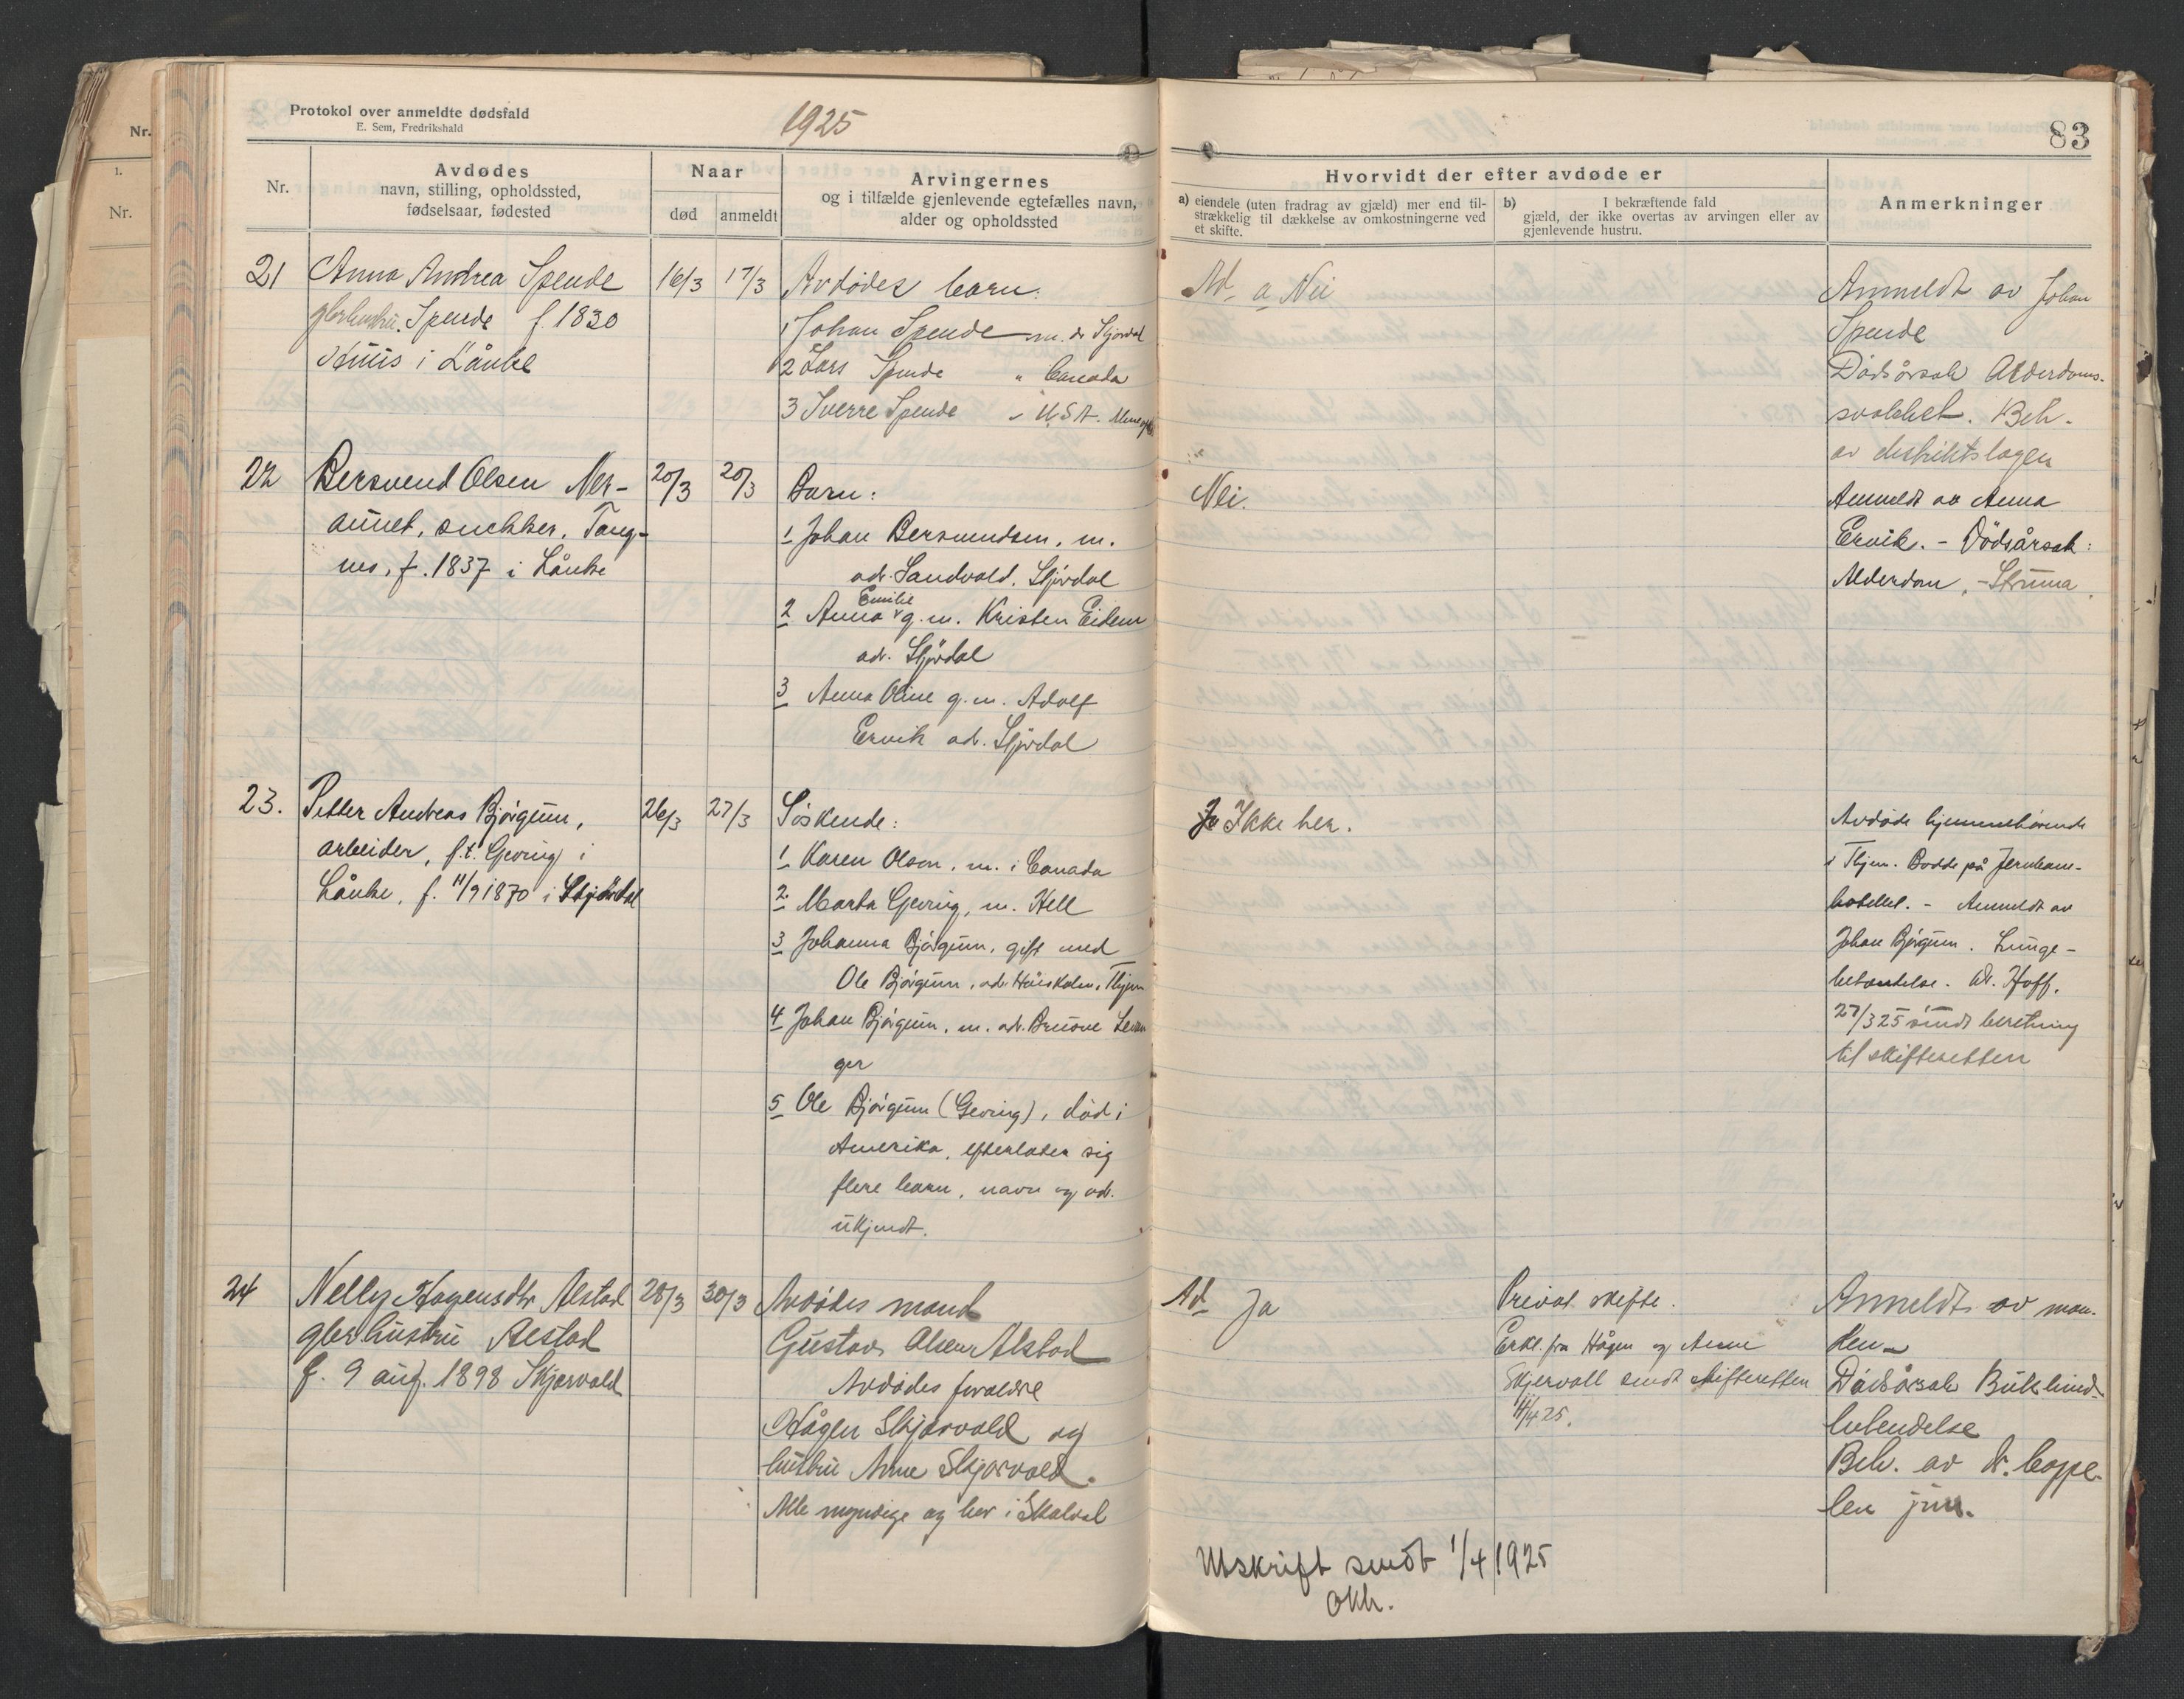 Protokol over anmeldte dødsfald
E. Sem, Fredrikshald
1925
Nr.
Avdødes
navn, stilling, opholdssted,
fødselsaar, fødested
Naar
død
anmeldt
Arvingernes
og i tilfælde gjenlevende egtefælles navn,
alder og opholdssted
21
Anna Andrea Spende
Spende f. 1830
i Lånke
16/3
17/3
Avdødes barn:
1 Johan Spende m. ad. Stjørdal
2 Lars Spende " Canada
3 Sverre Spende " U.S.A.
22
Bersvend Olsen Ner-
aunet, snekker, Tang-
mo, f. 1837 i Lånke
20/3
20/3
Barn:
1 Johan Bersvendsen, m.
ad. Sandvold, Stjørdal
2 Anna Emilie g. m. Kristen Eidem
ad. Stjørdal
3 Anna Oline g. m. Adolf
Ervik ad. Stjørdal
23.
Petter Andreas Bjørgum,
arbeider, f.t. Gevingj i
Lånke, f. 11/9 1870 i Stjørdal
26/3
27/3
Søskende:
1 Karen Olsen, m. i Canada
2 Marta Geving, m. Hell
3 Johanna Bjørgum, gift med
Ole Bjørgum, ad. Thjem
4 Johan Bjørgum, m. ad. Levan
ger
5 Ole Bjørgum (Geving), død i
Amerika, efterlater sig
flere barn, navn og ad.
ukjendt.
24
Nelly Hagensdtr Alstad
gbr hustru Alstad
f. 9 aug. 1898 Skjervold
28/3
30/3
Avdødes mand
Gustav Olsen Alstad
Avdødes forældre
Hågen Skjervold og
hustru Anne Skjervold.
Alle myndige og bor i Skatval
83
Hvorvidt der efter avdøde er
a) eiendele (uten fradrag av gjæld) mer end til-
strækkelig til dækkelse av omkostningerne ved
et skifte.
b) I bekræftende fald
gjæld, der ikke overtas av arvingen eller av
gjenlevende hustru.
Anmerkninger
Ad a Nei
Anmeldt av Johan
Spende
Dødsårsak Alderdoms-
svakhet. Beh.
av distriktslægen
Nei.
Anmeldt av Anna
Ervik. - Dødsårsak:
Alderdom, - Struma.
Ja Ikke her.
Avdøde hjemmehørende
i Thjem. Bodde på Jernbane-
hotellet. - Anmeldt av
Johan Bjørgum. Lunge-
betændelse. dr. Hoff.
27/3 25 sendt beretning
til skifteretten
Ad Ja
Privat skifte.
Erkl. fra Hågen og Anne
Skjervoll sendt skifteretten
11/4 25.
Anmeldt av man-
den
Dødsårsak Bukhind-
betendelse
Beh. av dr. Coppe-
len jun.
Utskrift sendt 1/4 1925
OKH.
Nr.
1.
Nr.